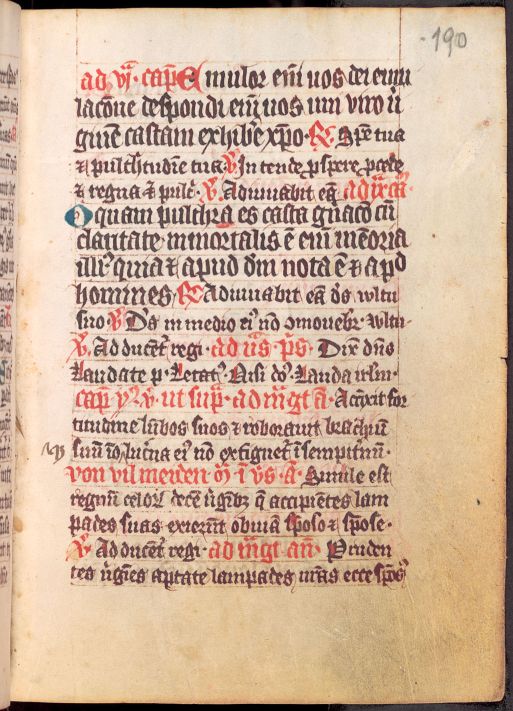 190
ad vi. cap. Emulor em vos dei emu
lacoe despondi em uos uni viro v
gine castam exhibe xpo. R. Spe tua
et pulchtudie tua V In tende pspere pcede
et regna et pulc. V. Adiuuabit ea ad ix ca
O quam pulchra es casta gnaco cu
claritate inmortalis e em memoria
illi quia et apud dm nota e et apd
homines. R. Adiuuabit ea ds vltu
suo V Ds in medio ei no comouebr vltu.
V. Ad ducent regi. ad us ps. Dix dns
Laudate p. Letat. Nisi ds. Lauda irlm.
cap y V. ut sup. ad mgt a. Accinxit for
titudine lubos suos et roborauit brachiu
suu io lucerna ei no extiguet i sempitnu.
von vil meiden i us. a. Simile est
regnu celor dece ugibz q accipietes lam
pades suas exierut obuia sposo et spose.
V. Ad ducent regi. ad mgt an. Pruden
tes ugies aptate lampades uras ecce spos